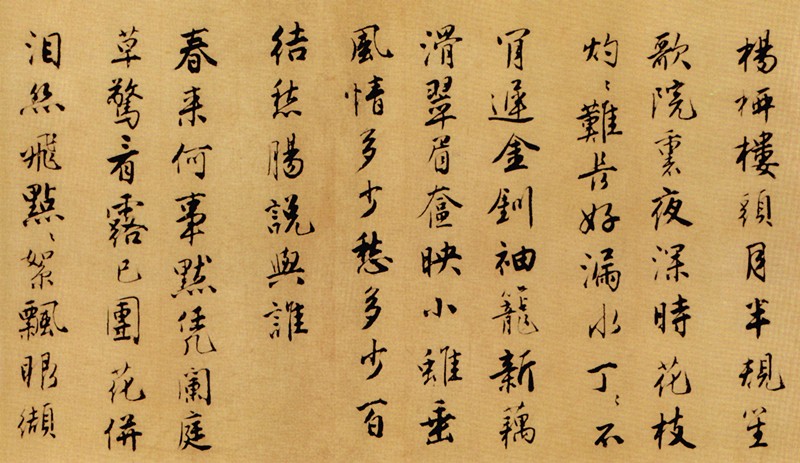 楊柳樓頭月半規笙
歌院裏夜深時花枝
灼〻難長好漏水丁〻不
肯遲金釧袖籠新藕
滑翠眉奩映小蛾垂
風情多少愁多少百
結愁腸說與誰
春来何事默凭闌庭
草驚看露已團花併
泪絲飛點〻絮飄眼纈